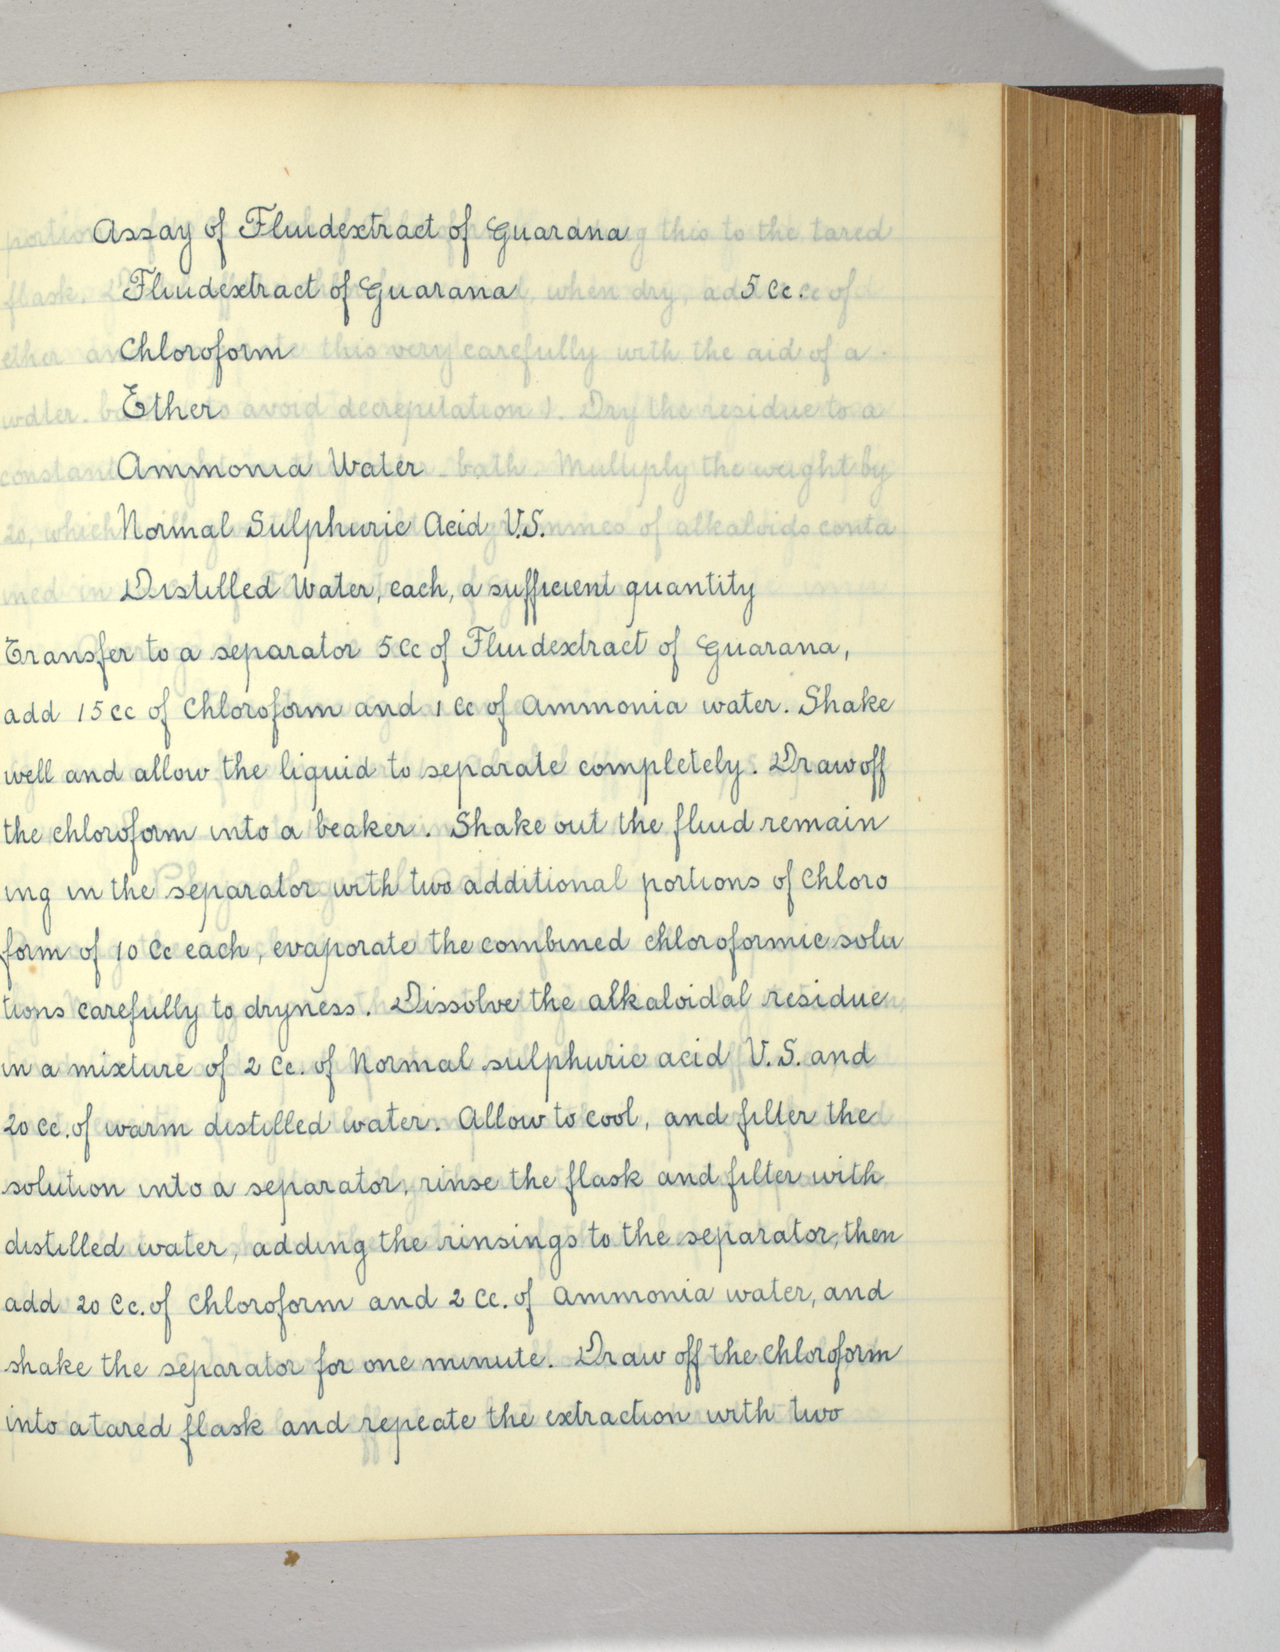 Assay of Fluidextract of Guarana
Fluidextract of Guarana 5 Cc.
Chloroform
Ether
Ammonia Water
Normal Sulphuric Acid V.S.
Distilled Water, each, a sufficient quantity
Transfer to a separator 5 Cc of Fluidextract of Guarana,
add 15 cc of Chloroform and 1 Cc of Ammonia water. Shake
well and allow the liquid to separate completely. Draw off
the chloroform into a beaker. Shake out the fluid remain
ing in the separator with two additional portions of Chloro
form of 10 Cc each, evaporate the combined chloroformic solu
tions carefully to dryness. Dissolve the alkaloidal residue
in a mixture of 2 Cc. of Normal sulphuric acid V.S. and
20 cc. of warm distilled water. Allow to cool, and filter the
solution into a separator, rinse the flask and filter with
distilled water, adding the rinsings to the separator, then
add 20 Cc. of Chloroform and 2 Cc. of Ammonia water, and
shake the separator for one minute. Draw off the Chloroform
into a tared flask and repeate the extraction with two